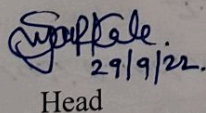 29/9/22.
Head